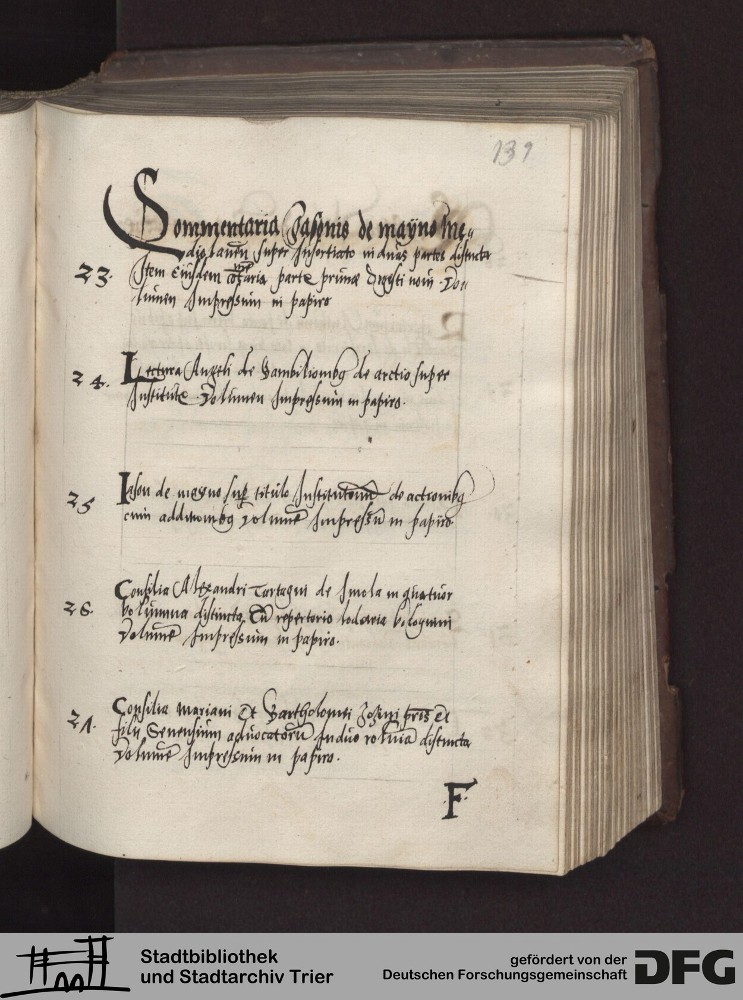 139
Commentaria Jasonis de mayno me„
diolaneñ super Infortiato in duas partes distincta
23. Item Eiusdem comẽtaria parte prime digesti novi Vo„
lumen Impressum in papiro
24. Lectura Angeli de Gambilionibꝫ de arctio super
Institute Volumen Impressum in papiro.
25 Jason de mayno sup titulo Institutionũ de actionibꝫ
cum additionibꝫ volumẽ Impressũ in papiro
26. Consilia Alexandri Tartagni de Imola in quatuor
volumina distincta Cũ repertorio lodovici bolognini
Volumẽ Impressum in papiro.
27. Consilia Mariani Et Bartholomei Zozini pris Et
filii Senensium advocatorũ In duo volumĩa distincta
Volumẽ Impressum in papiro.
F
Stadtbibliothek
und Stadtarchiv Trier
gefördert von der
Deutschen Forschungsgemeinschaft
DFG